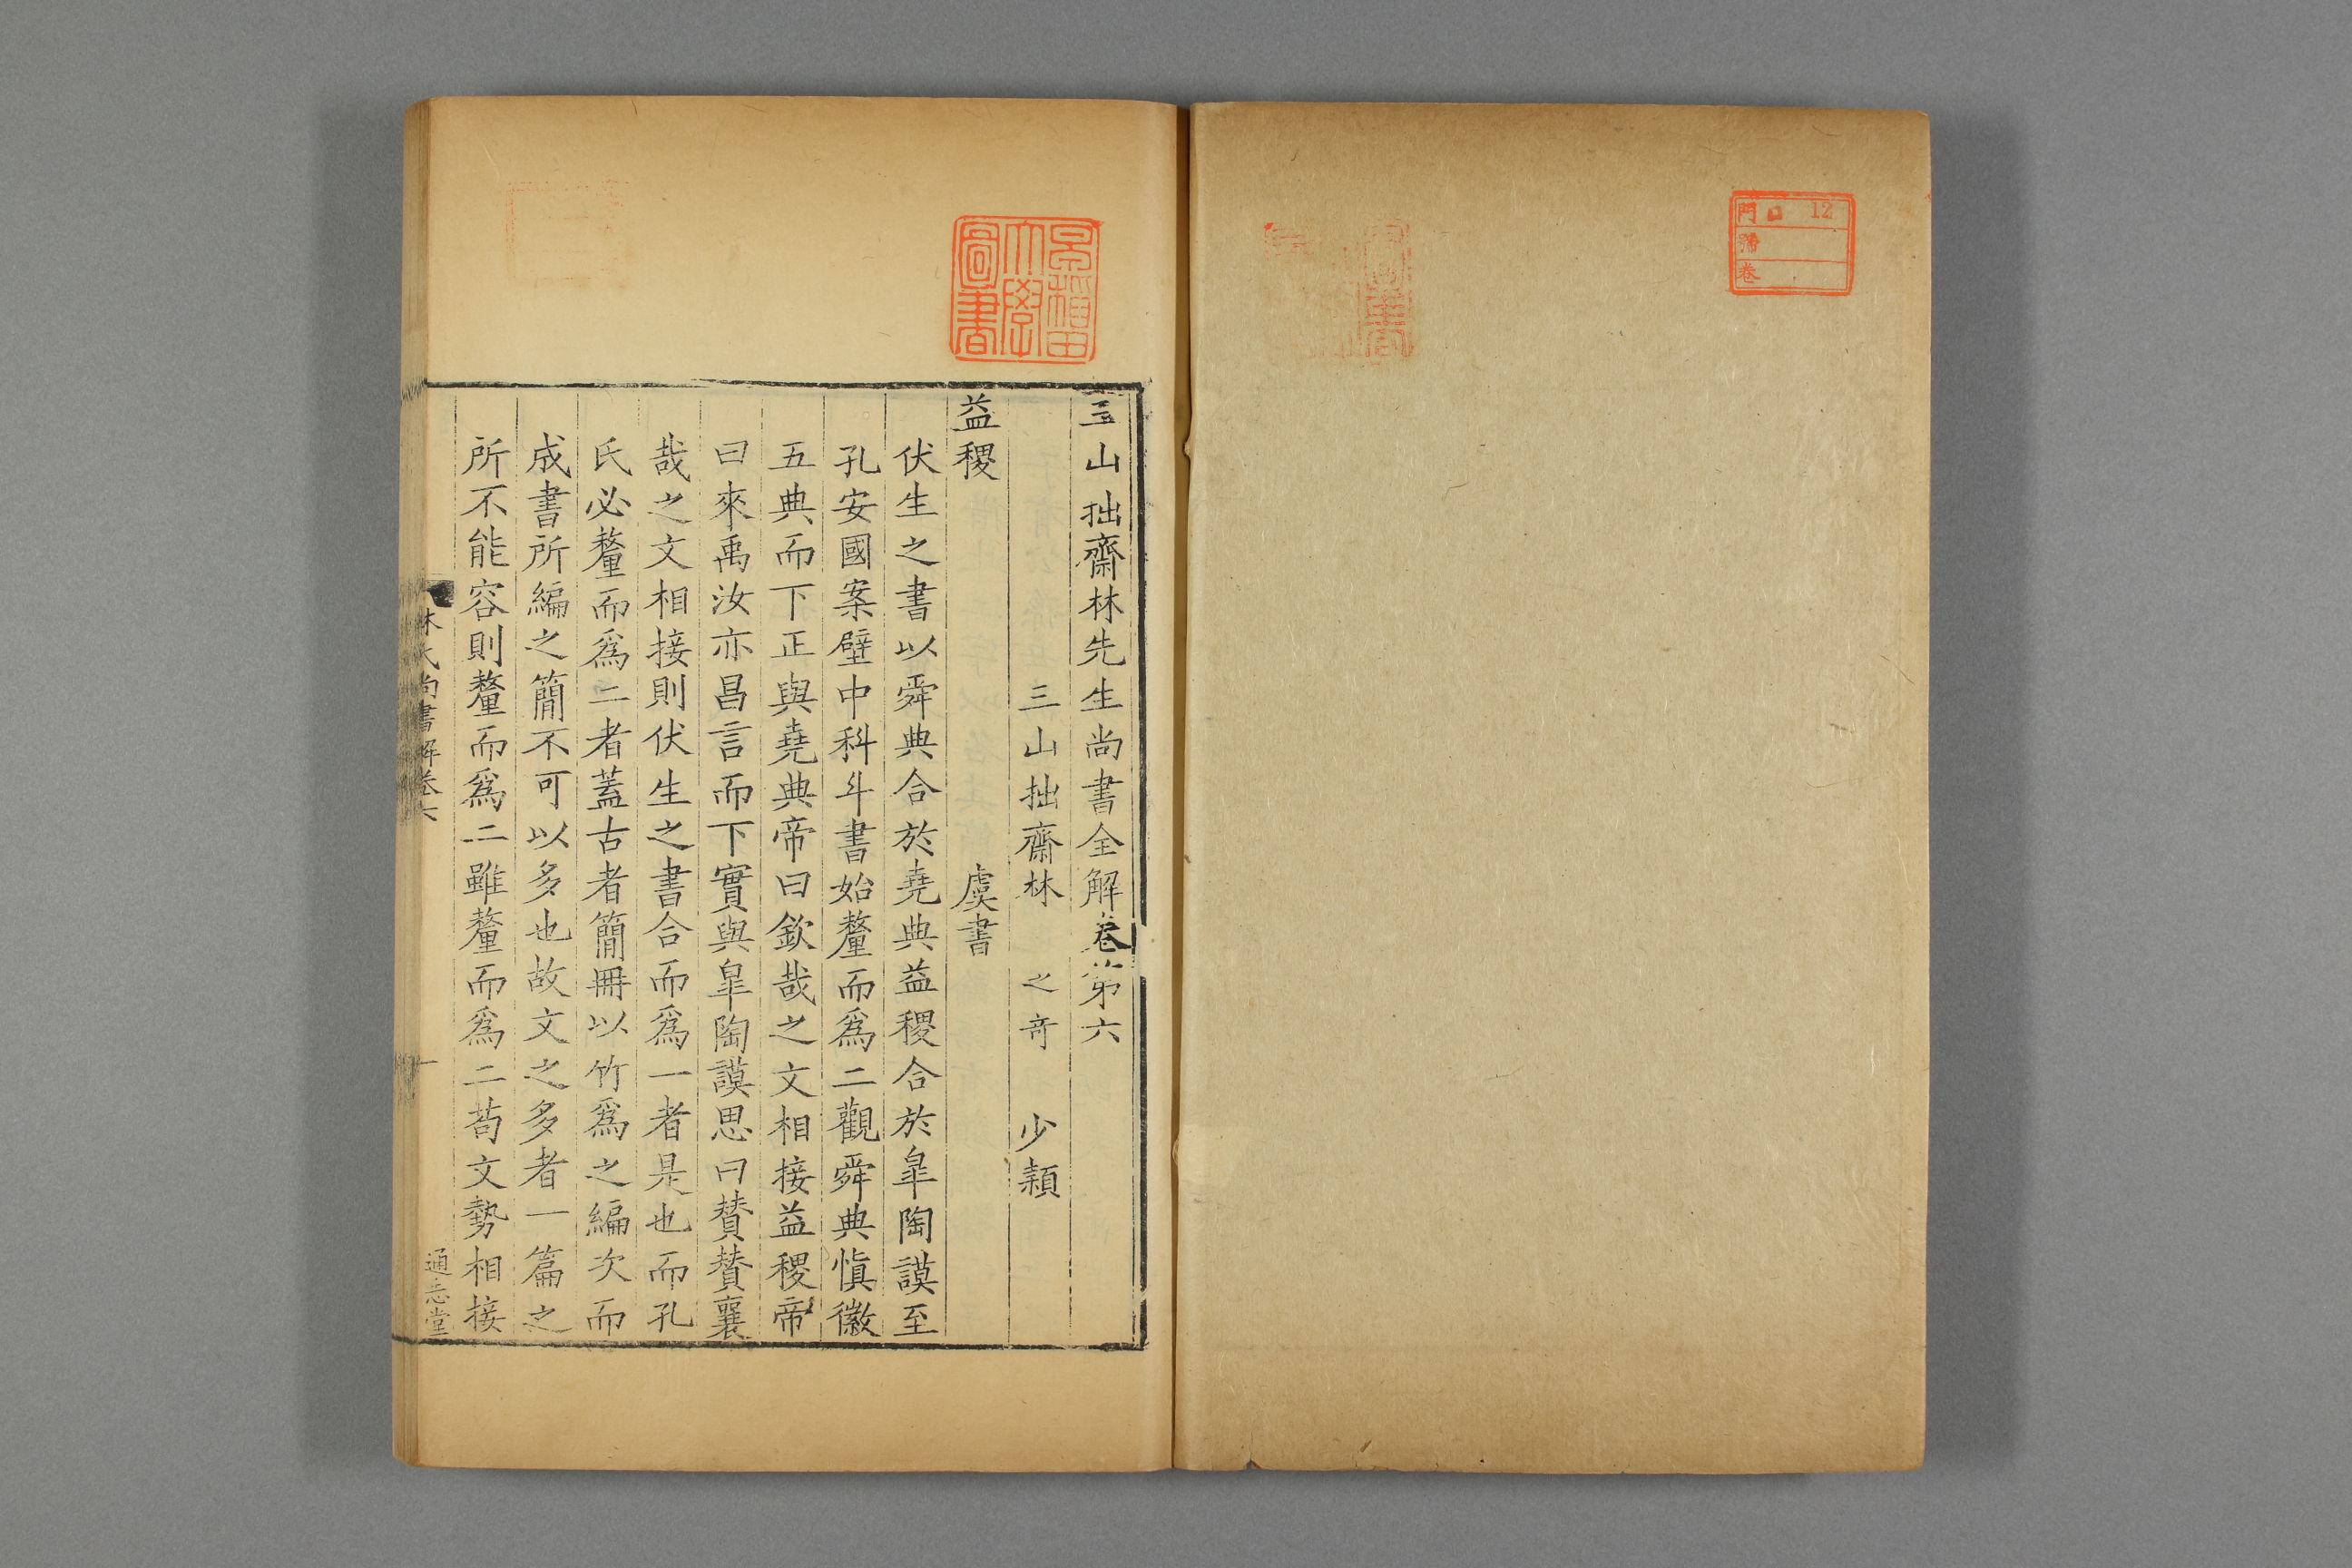 門 口 12
號
卷
早稲田
大學
圖書
三山拙齋林先生尚書全解卷第六
三山拙齋林 之奇 少穎
益稷 虞書
伏生之書以舜典合於堯典益稷合於皐陶謨至
孔安國案壁中科斗書始釐而爲二觀舜典愼徽
五典而下正與堯典帝曰欽哉之文相接益稷帝
曰來禹汝亦昌言而下實與皐陶謨思曰贊贊襄
哉之文相接則伏生之書合而爲一者是也而孔
氏必釐而爲二者蓋古者簡冊以竹爲之編次而
成書所編之簡不可以多也故文之多者一篇之
所不能容則釐而爲二雖釐而爲二苟文勢相接
林氏尚書解卷六 一 通志堂